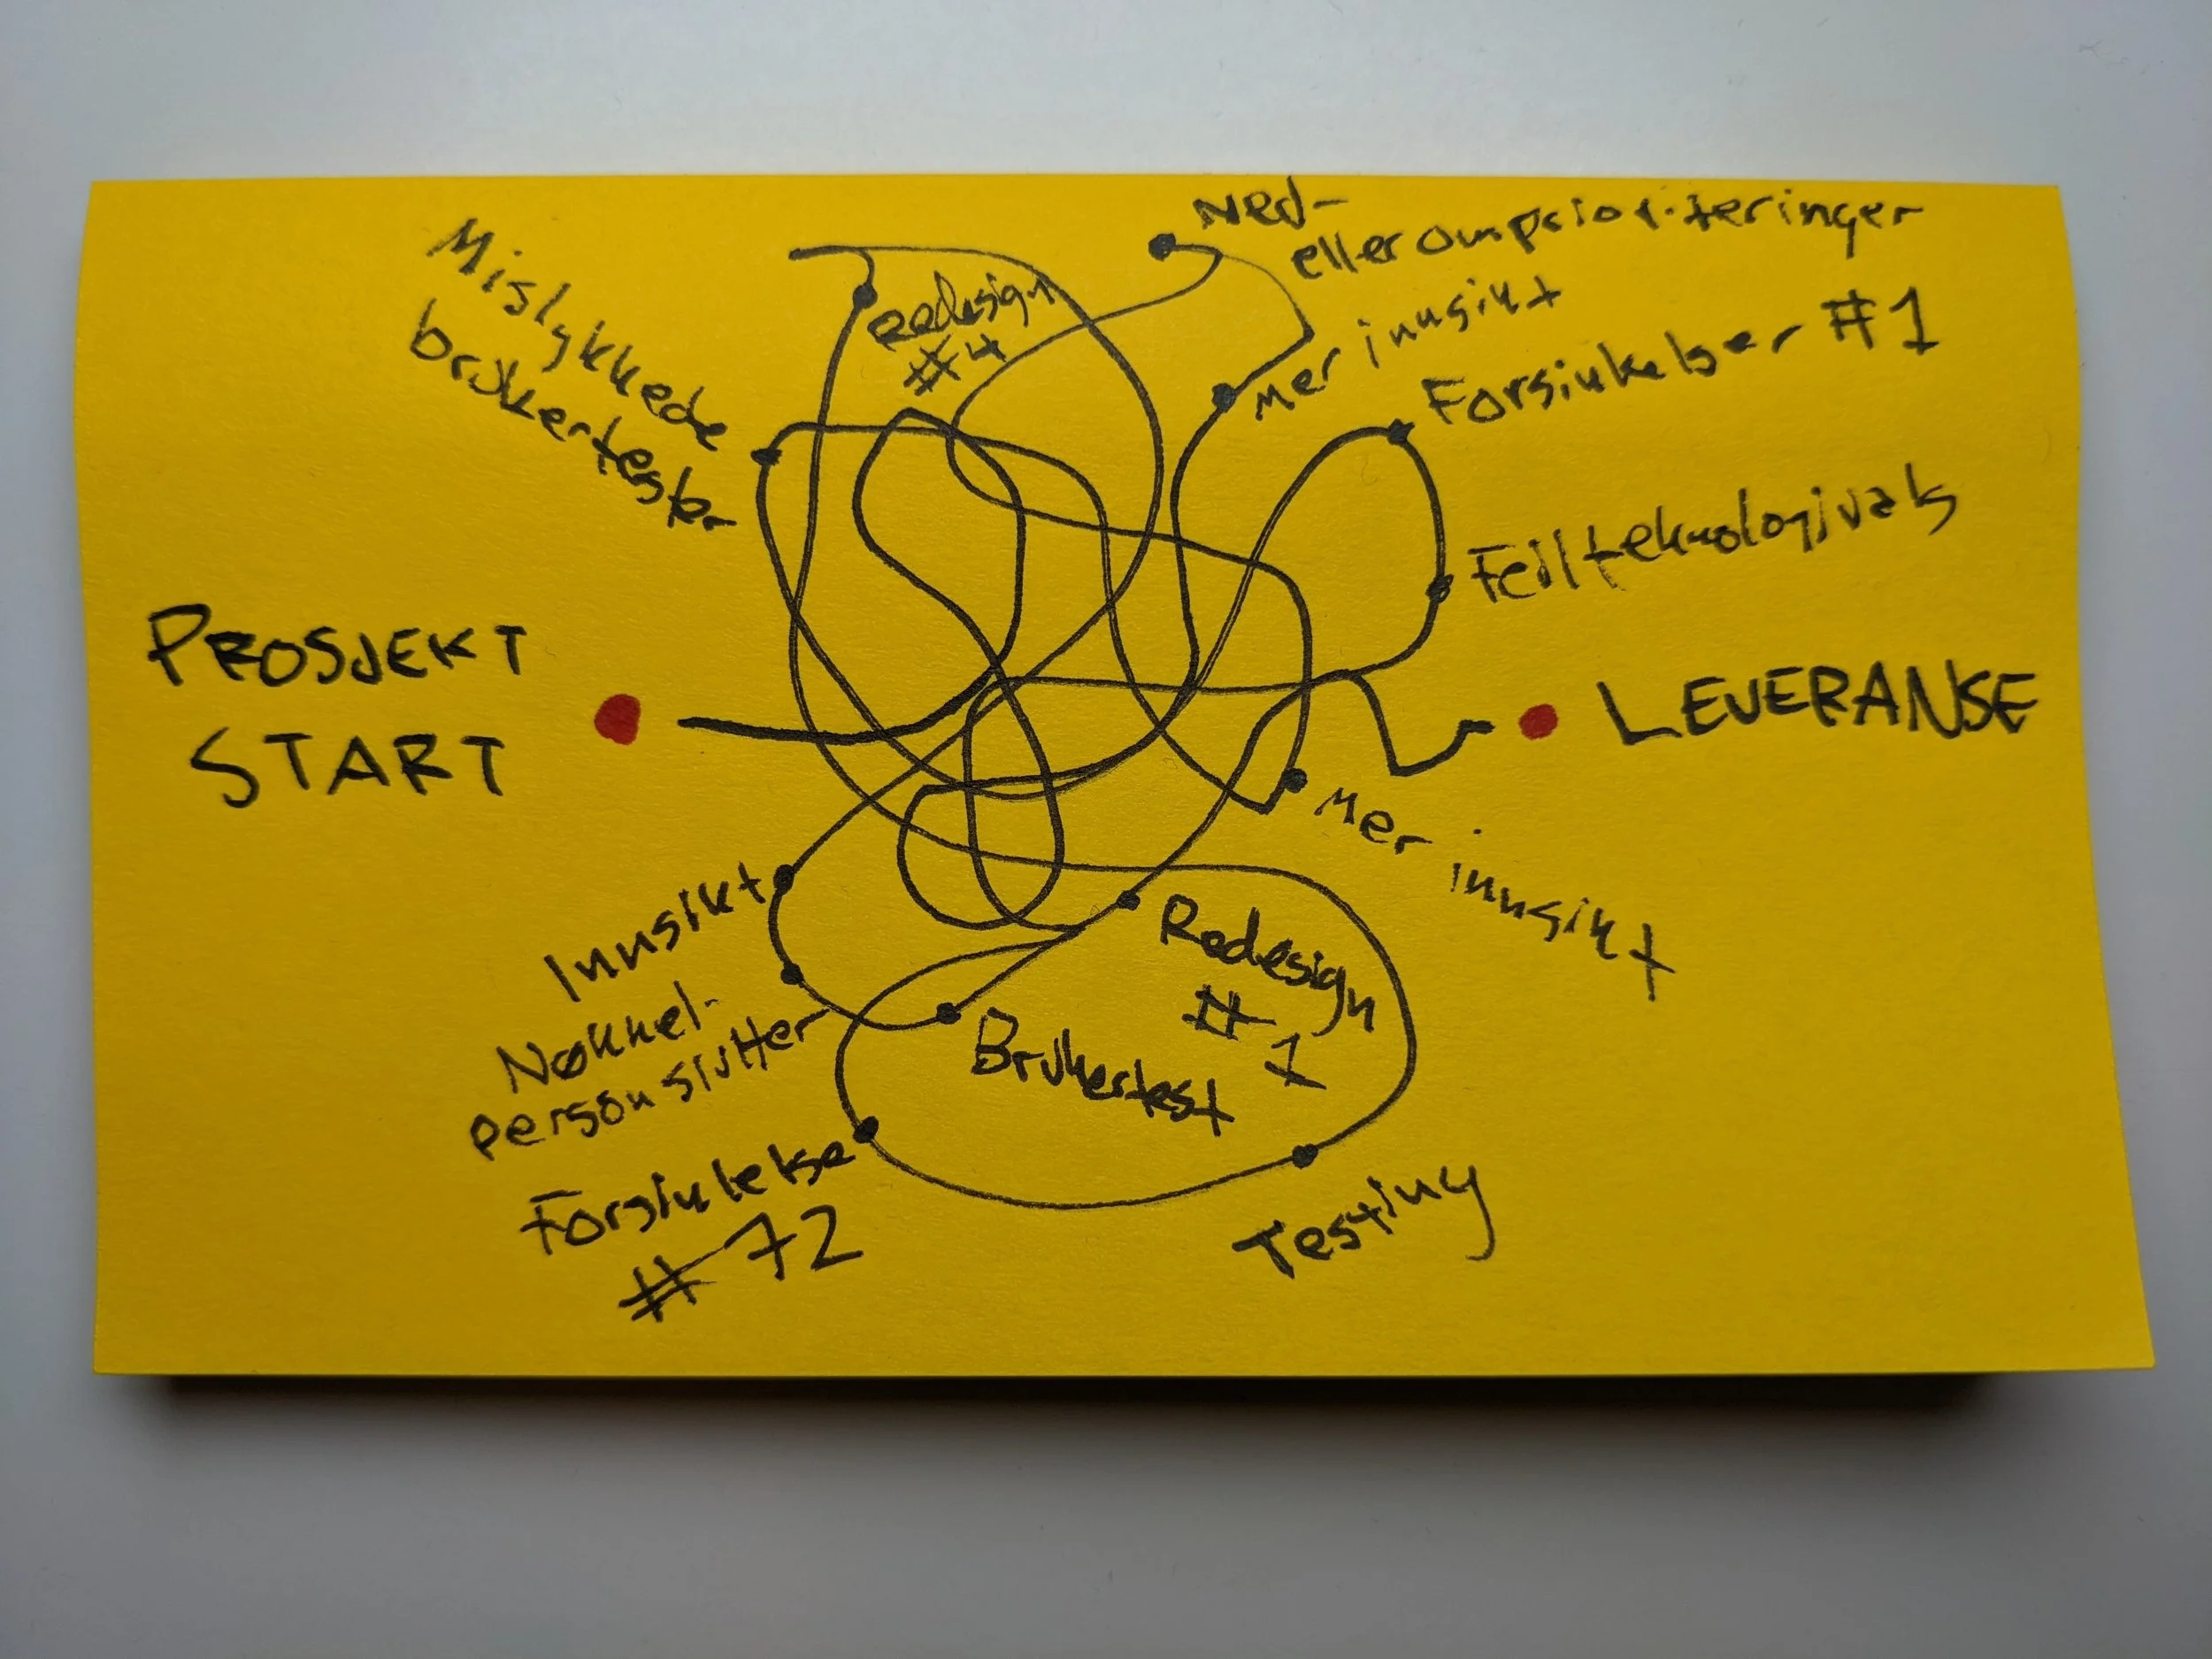 PROSJEKT
START
Mislykkede
brukertester
Redesign
#4
Ned-
eller omprioriteringer
Mer innsikt
Forsinkelser #1
Feil teknologivalg
LEVERANSE
Mer innsikt
Redesign
#1
Brukertest
Testing
Innsikt
Nøkkel-
person slutter
Forsinkelse
#72